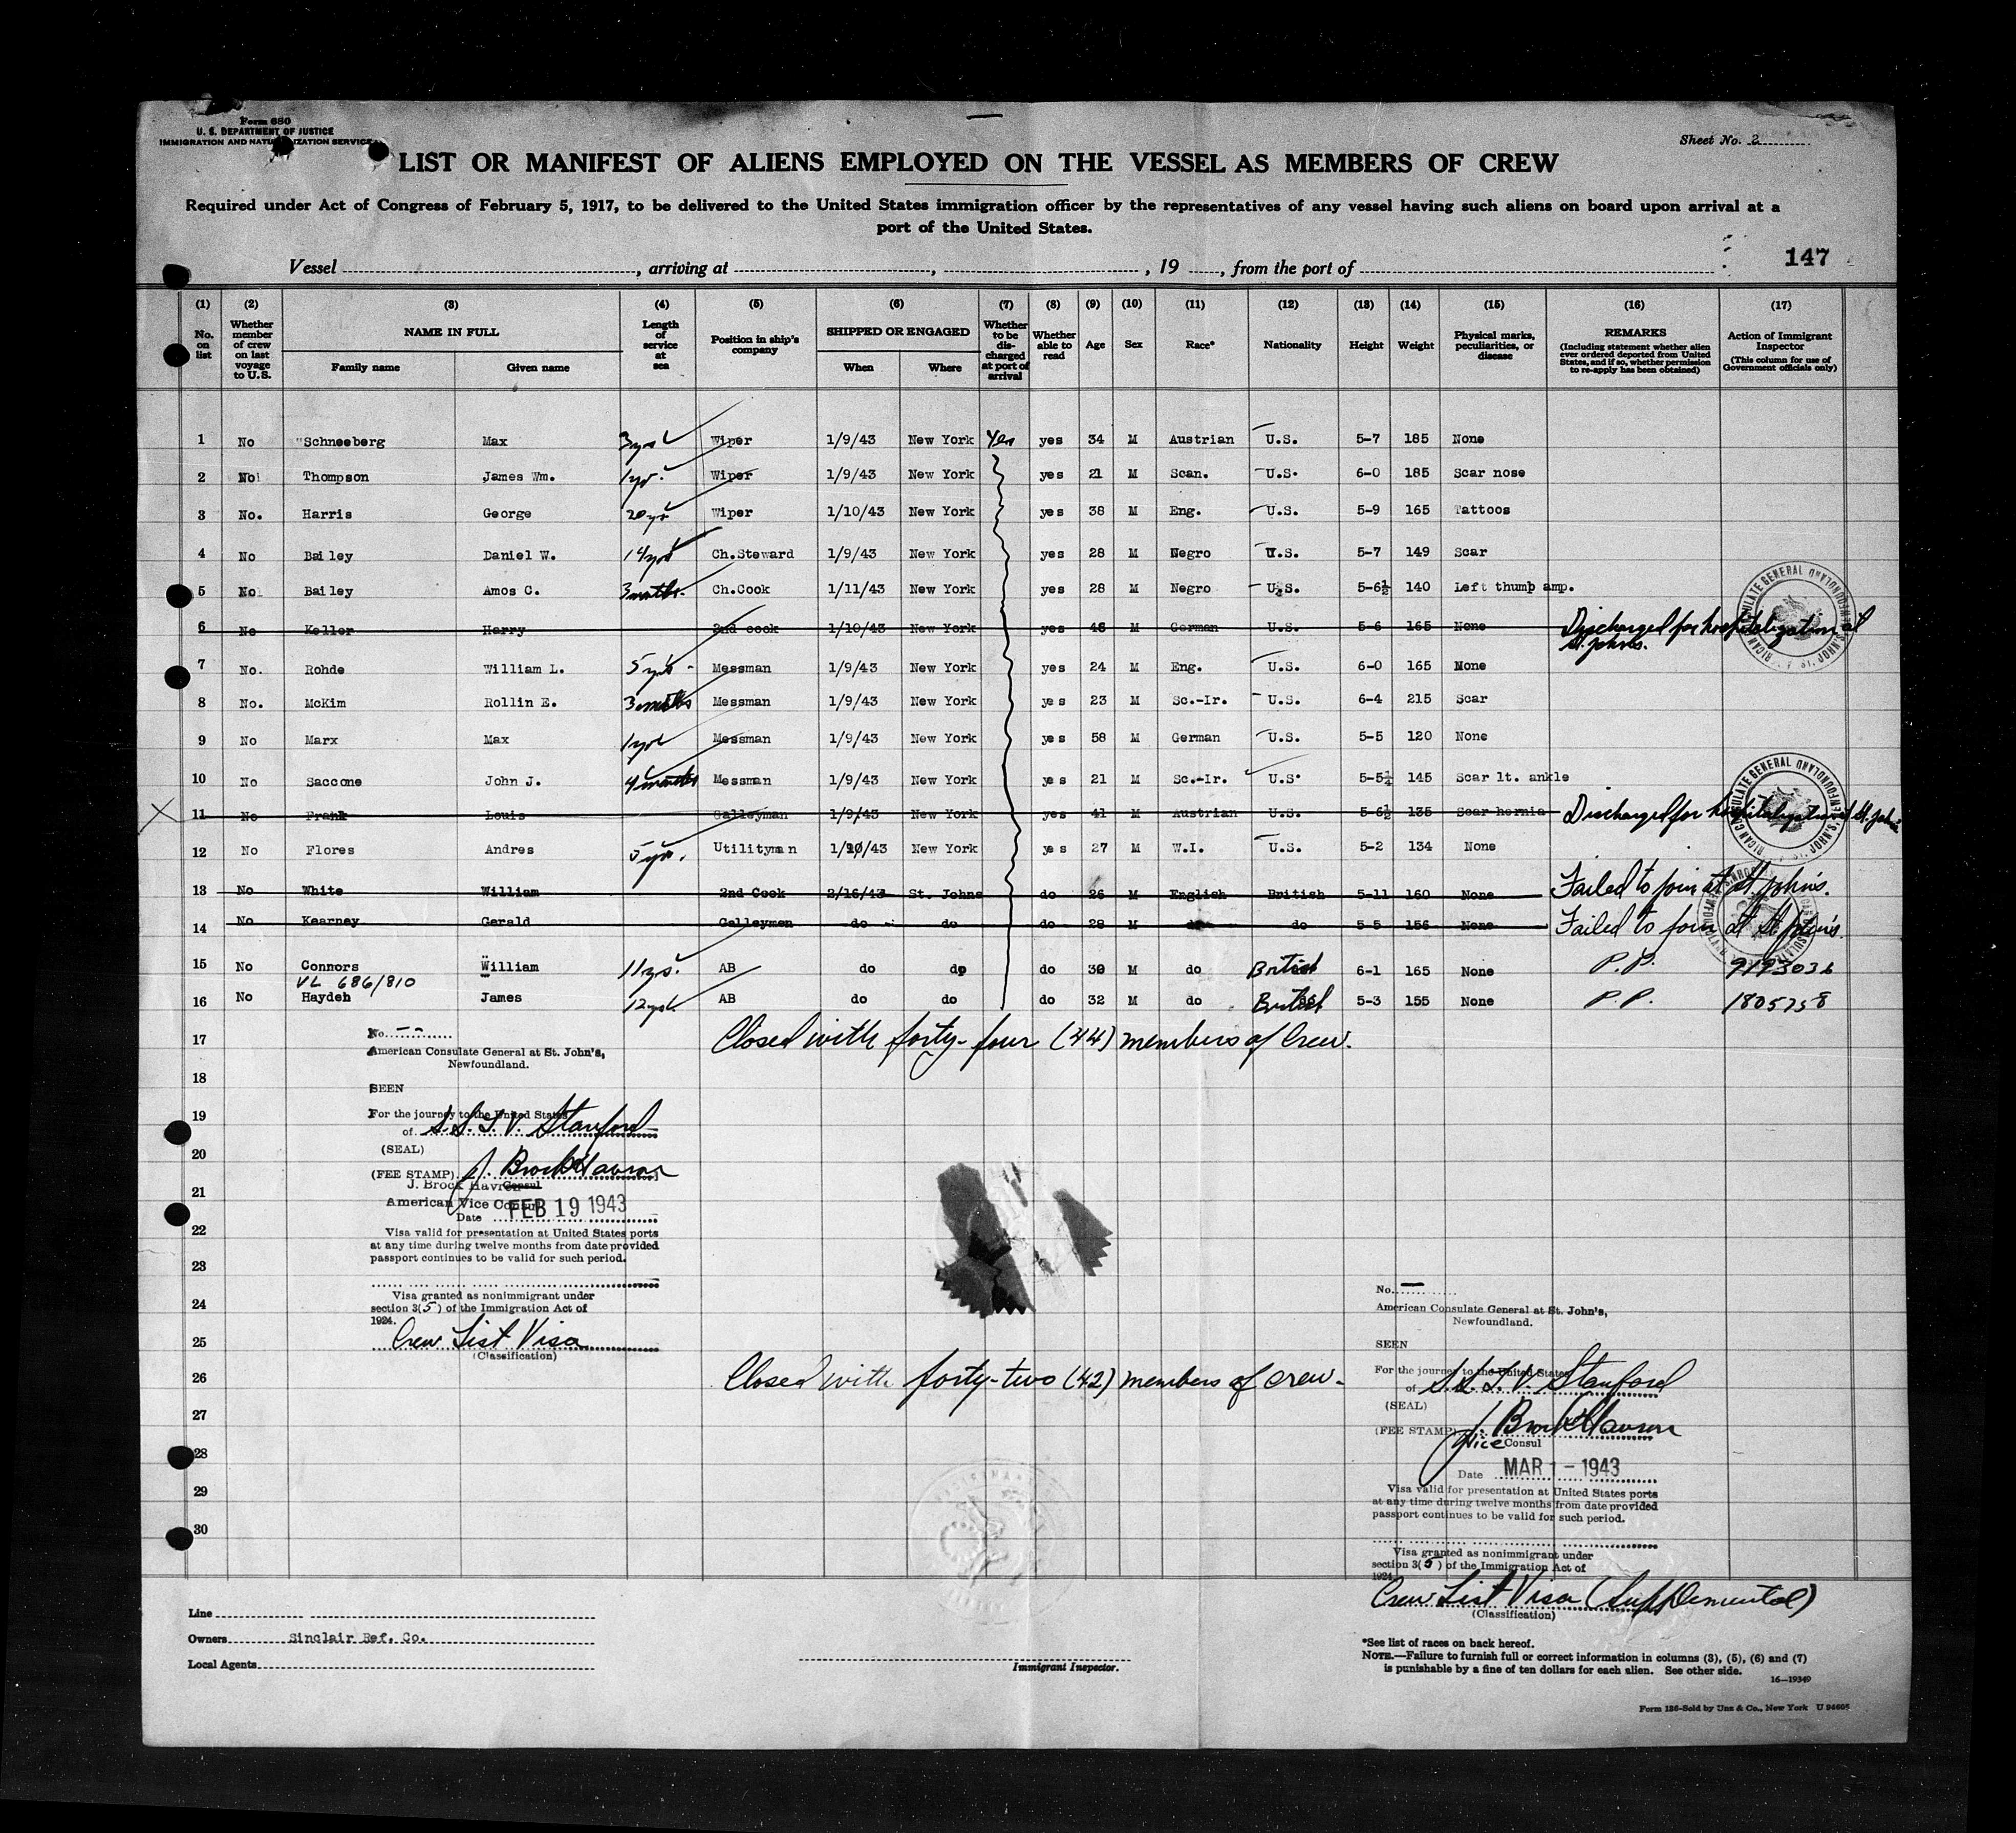 Form 680
U. S. DEPARTMENT OF JUSTICE
IMMIGRATION AND NATURALIZATION SERVICE
Sheet No. 2
LIST OR MANIFEST OF ALIENS EMPLOYED ON THE VESSEL AS MEMBERS OF CREW
Required under Act of Congress of February 5, 1917, to be delivered to the United States immigration officer by the representatives of any vessel having such aliens on board upon arrival at a
port of the United States.
Vessel , arriving at , , 19 , from the port of
147
(1) (2) (3) (4) (5) (6) (7) (8) (9) (10) (11) (12) (13) (14) (15) (16) (17)
No. on list
Whether member of crew on last voyage to U.S.
NAME IN FULL
Family name Given name
Length of service at sea
Position in ship's company
SHIPPED OR ENGAGED
When Where
Whether to be discharged at port of arrival
Whether able to read
Age
Sex
Race*
Nationality
Height
Weight
Physical marks, peculiarities, or disease
REMARKS
(Including statement whether alien ever ordered deported from United States, and if so, whether permission to re-apply has been obtained)
Action of Immigrant Inspector
(This column for use of Government officials only)
1 No Schneeberg Max 3 yrs Wiper 1/9/43 New York Yes yes 34 M Austrian U.S. 5-7 185 None
2 No Thompson James Wm. 1 yr. Wiper 1/9/43 New York yes 21 M Scan. U.S. 6-0 185 Scar nose
3 No. Harris George 20 yrs Wiper 1/10/43 New York yes 38 M Eng. U.S. 5-9 165 Tattoos
4 No Bailey Daniel W. 14 yrs Ch.Steward 1/9/43 New York yes 28 M Negro U.S. 5-7 149 Scar
5 No Bailey Amos C. 3 mths. Ch.Cook 1/11/43 New York yes 28 M Negro U.S. 5-6½ 140 Left thumb amp.
6 No Keller Harry 2nd cook 1/10/43 New York yes 46 M German U.S. 5-6 165 None Discharged for hospitalization at
St. Johns.
7 No. Rohde William L. 5 yrs - Messman 1/9/43 New York yes 24 M Eng. U.S. 6-0 165 None
8 No. McKim Rollin E. 3 months Messman 1/9/43 New York yes 23 M Sc.-Ir. U.S. 6-4 215 Scar
9 No Marx Max 1 yr Messman 1/9/43 New York yes 58 M German U.S. 5-5 120 None
10 No Saccone John J. 4 months Messman 1/9/43 New York yes 21 M Sc.-Ir. U.S. 5-5¼ 145 Scar lt. ankle
11 No Frank Louis Galleyman 1/9/43 New York yes 41 M Austrian U.S. 5-6½ 135 Scar hernia Discharged for hospitalization at St. Johns
12 No Flores Andres 5 yrs. Utilityman /43 New York yes 27 M W.I. U.S. 5-2 134 None
13 No White William 2nd Cook 2/16/43 St. Johns do 26 M English British 5-11 160 None Failed to join at St. John's.
14 No Kearney Gerald Galleymen do do do 28 M do do 5-5 156 None Failed to join at St. John's.
15 No Connors William 11 yrs. AB do do do 30 M do British 6-1 165 None P.P.
VL 686/810
16 No Hayden James 12 yrs. AB do do do 32 M do British 5-3 155 None P.P.
17 Closed with forty-four (44) members of crew.
18
19
20
21
22
23
24
25
26 Closed with forty-two (42) members of crew.
27
28
29
30
No.
American Consulate General at St. John's,
Newfoundland.
SEEN
For the journey to the United States
of S.S. T.V. Stanford
(SEAL)
(FEE STAMP)
Consul
American Vice Consul
Date FEB 19 1943
Visa valid for presentation at United States ports
at any time during twelve months from date provided
passport continues to be valid for such period.
Visa granted as nonimmigrant under
section 3(5) of the Immigration Act of
1924.
Crew List Visa
(Classification)
No.
American Consulate General at St. John's,
Newfoundland.
SEEN
For the journey to the United States
of S.S. T.V. Stanford
(SEAL)
(FEE STAMP)
Vice Consul
Date MAR 1 - 1943
Visa valid for presentation at United States ports
at any time during twelve months from date provided
passport continues to be valid for such period.
Visa granted as nonimmigrant under
section 3(5) of the Immigration Act of
1924.
Crew List Visa (Supplemental)
(Classification)
Line
Owners Sinclair Ref. Co.
Local Agents
Immigrant Inspector.
*See list of races on back hereof.
NOTE.—Failure to furnish full or correct information in columns (3), (5), (6) and (7)
is punishable by a fine of ten dollars for each alien. See other side.
16—19349
Form 186-Sold by Unz & Co., New York